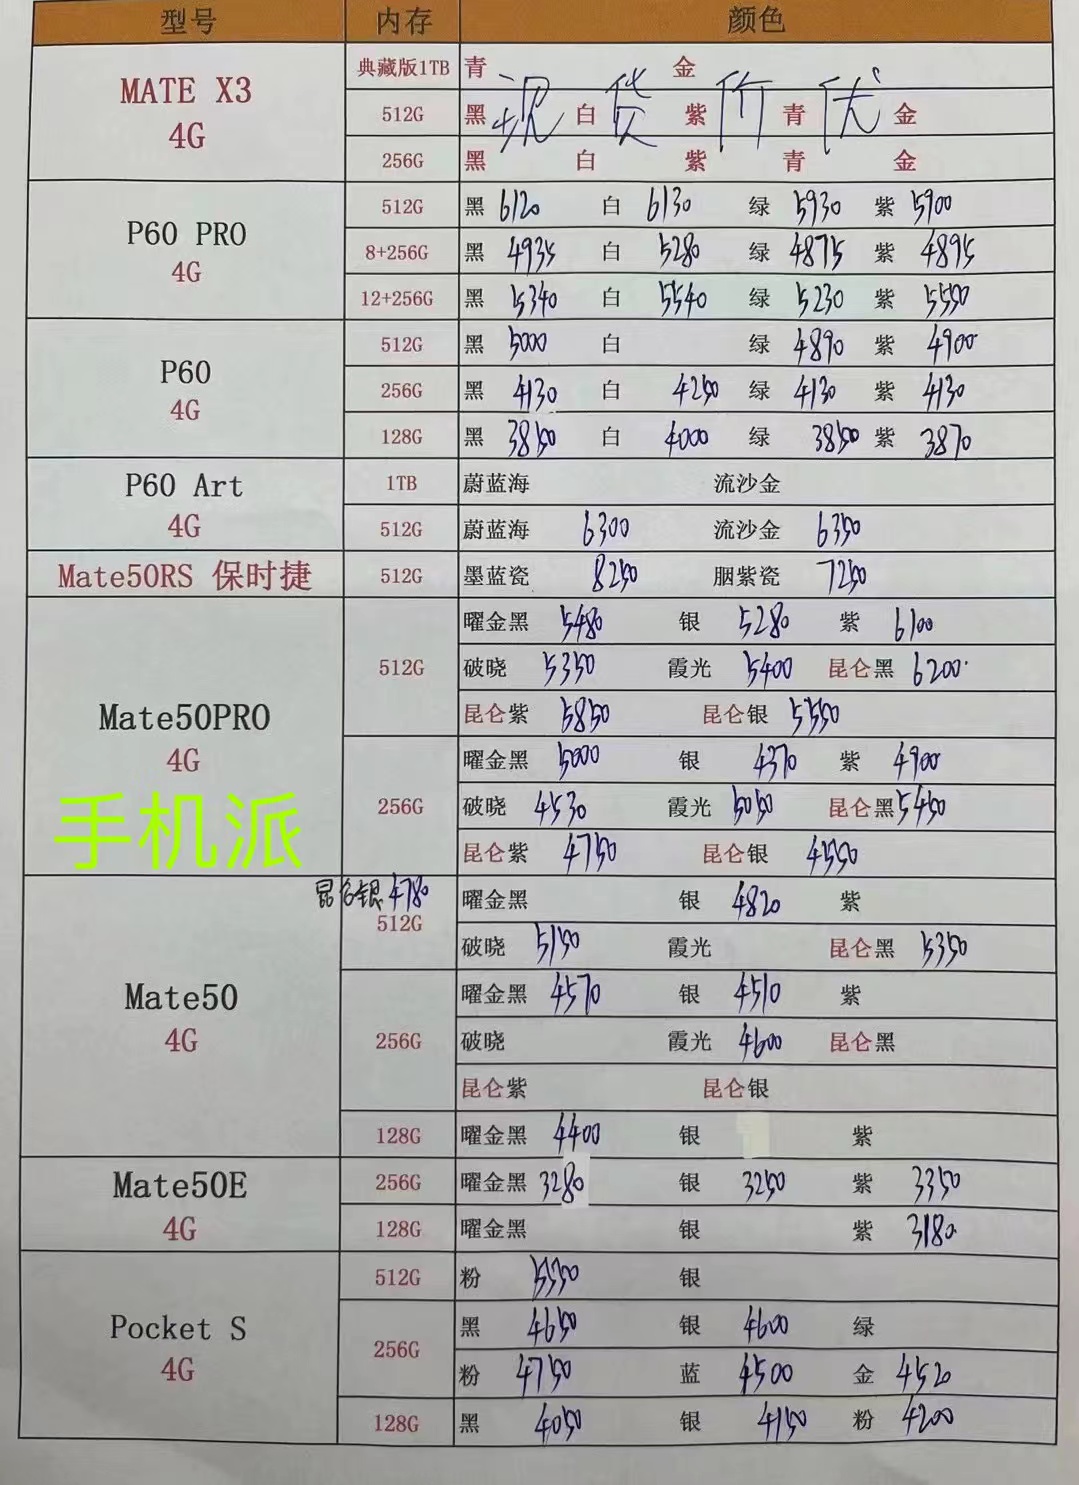 型号 内存 颜色
MATE X3 4G
典藏版1TB 青 金
512G 黑 白 紫 青 金
现货价优
256G 黑 白 紫 青 金
P60 PRO 4G
512G 黑 6120 白 6130 绿 5930 紫 5900
8+256G 黑 4935 白 5280 绿 4875 紫 4895
12+256G 黑 5340 白 5540 绿 5230 紫 5550
P60 4G
512G 黑 5000 白 绿 4890 紫 4900
256G 黑 4130 白 4250 绿 4130 紫 4130
128G 黑 3850 白 4000 绿 3850 紫 3870
P60 Art 4G
1TB 蔚蓝海 流沙金
512G 蔚蓝海 6300 流沙金 6350
Mate50RS 保时捷 512G 墨蓝瓷 8250 胭紫瓷 7250
Mate50PRO 4G
手机派
512G 曜金黑 5480 银 5280 紫 6100
破晓 5350 霞光 5400 昆仑黑 6200
昆仑紫 5850 昆仑银 5550
256G 曜金黑 5000 银 4370 紫 4900
破晓 4530 霞光 5050 昆仑黑 5450
昆仑紫 4750 昆仑银 4550
Mate50 4G
昆仑银 4780
512G 曜金黑 银 4820 紫
破晓 5150 霞光 昆仑黑 5350
256G 曜金黑 4570 银 4510 紫
破晓 霞光 4600 昆仑黑
昆仑紫 昆仑银
128G 曜金黑 4400 银 紫
Mate50E 4G
256G 曜金黑 3280 银 3250 紫 3350
128G 曜金黑 银 紫 3180
Pocket S 4G
512G 粉 5350 银
256G 黑 4650 银 4600 绿
粉 4750 蓝 4500 金 4520
128G 黑 4050 银 4150 粉 4200